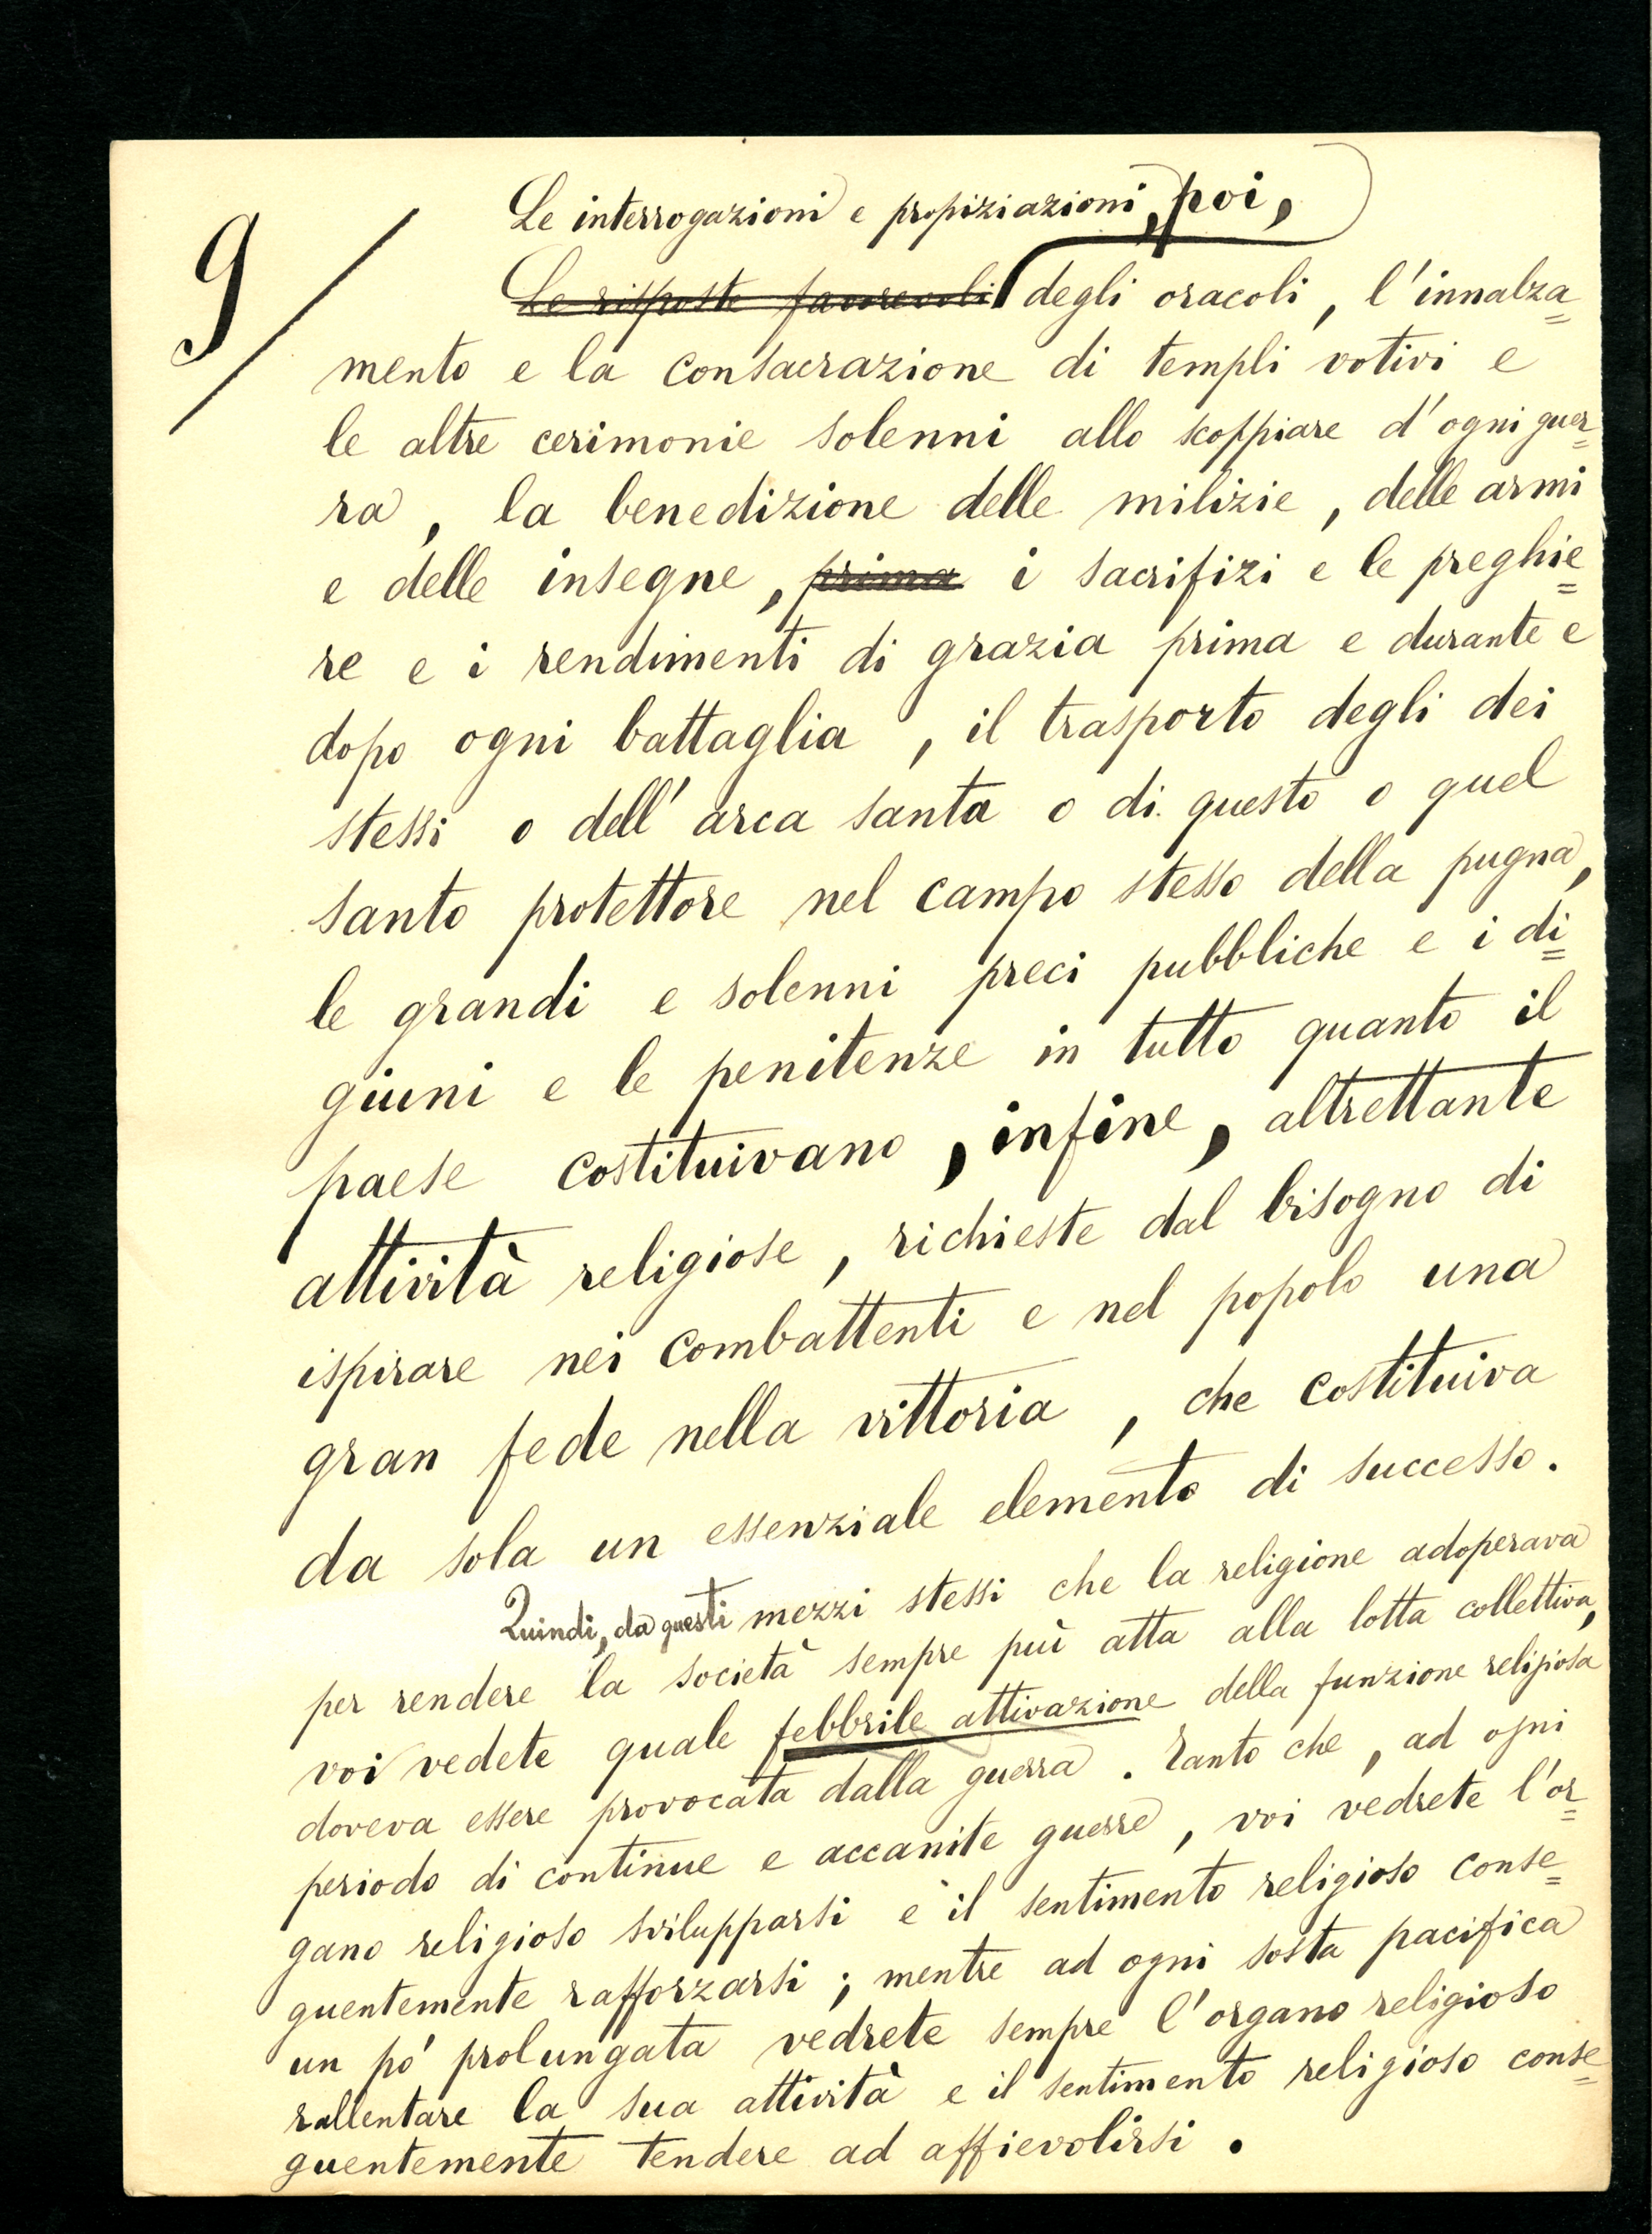 9/
Le interrogazioni e propiziazioni, poi,
Le risposte favorevoli degli oracoli, l'innalza=
mento e la consacrazione di templi votivi e
le altre cerimonie solenni allo scoppiare d'ogni guer=
ra, la benedizione delle milizie, delle armi
e delle insegne, prima i sacrifizi e le preghie=
re e i rendimenti di grazia prima e durante e
dopo ogni battaglia, il trasporto degli dei
stessi o dell'arca santa o di questo o quel
santo protettore nel campo stesso della pugna,
le grandi e solenni preci pubbliche e i di=
giuni e le penitenze in tutto quanto il
paese costituivano, infine, altrettante
attività religiose, richieste dal bisogno di
ispirare nei combattenti e nel popolo una
gran fede nella vittoria, che costituiva
da sola un essenziale elemento di successo.
Quindi, da questi mezzi stessi che la religione adoperava
per rendere la società sempre più atta alla lotta collettiva,
voi vedete quale febbrile attivazione della funzione religiosa
doveva essere provocata dalla guerra. Tanto che, ad ogni
periodo di continue e accanite guerre, voi vedrete l'or=
gano religioso svilupparsi e il sentimento religioso conse=
guentemente rafforzarsi; mentre ad ogni sosta pacifica
un pò prolungata vedrete sempre l'organo religioso
rallentare la sua attività e il sentimento religioso conse=
guentemente tendere ad affievolirsi.